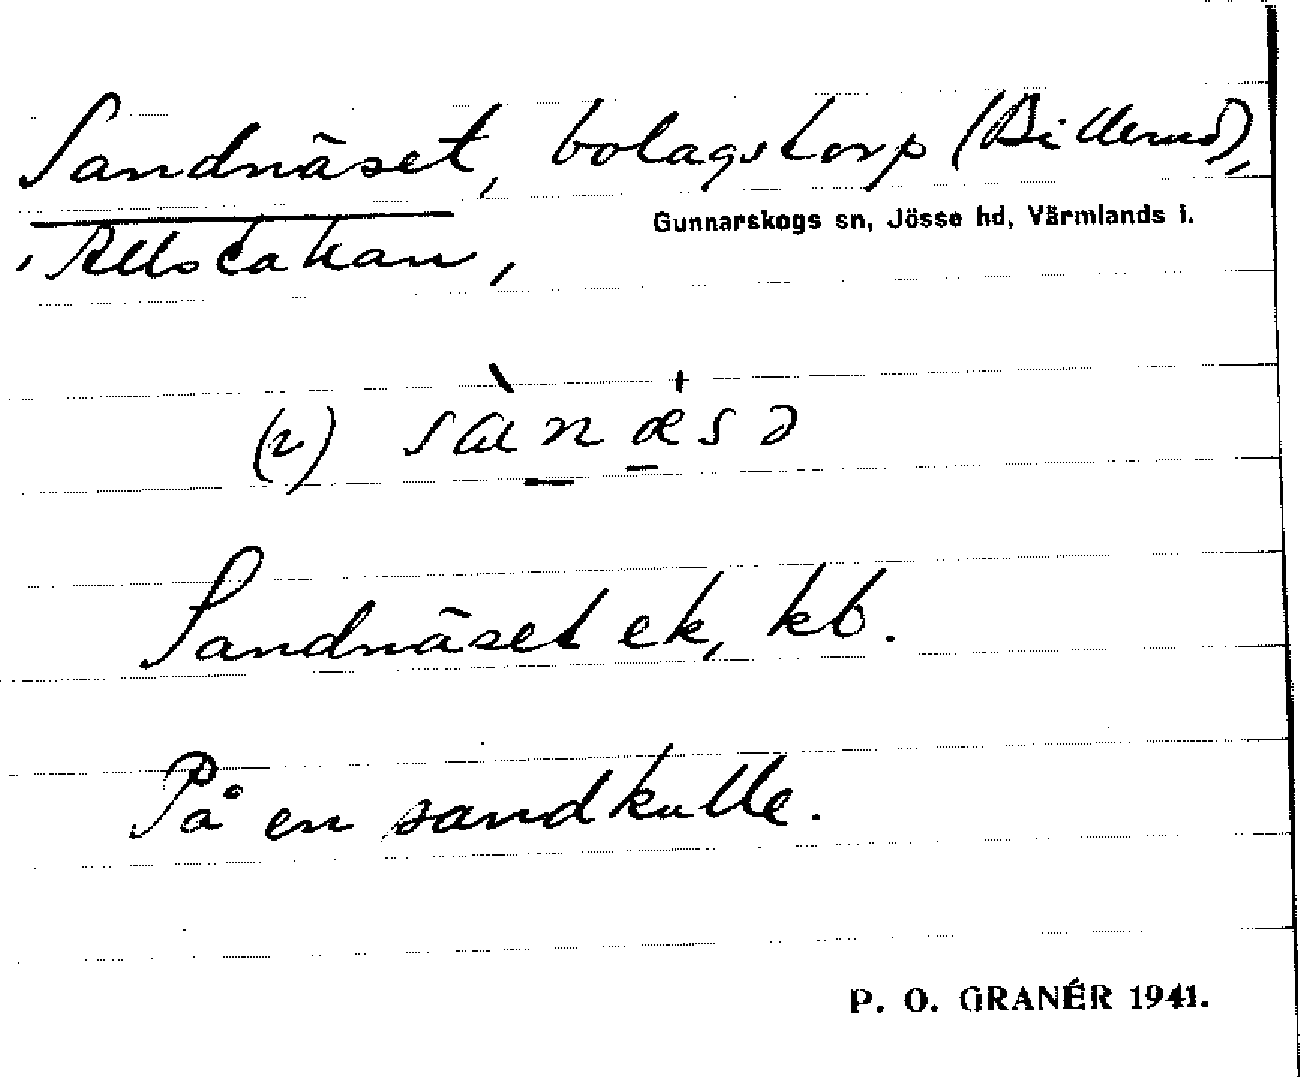 Sandnäset, bolagstorp (Billerud),
Gunnarskogs sn, Jösse hd, Värmlands l.
Allstakan,
(2) sànæsə
Sandnäset ek, kb.
På en sandkulle.
P. O. GRANÉR 1941.